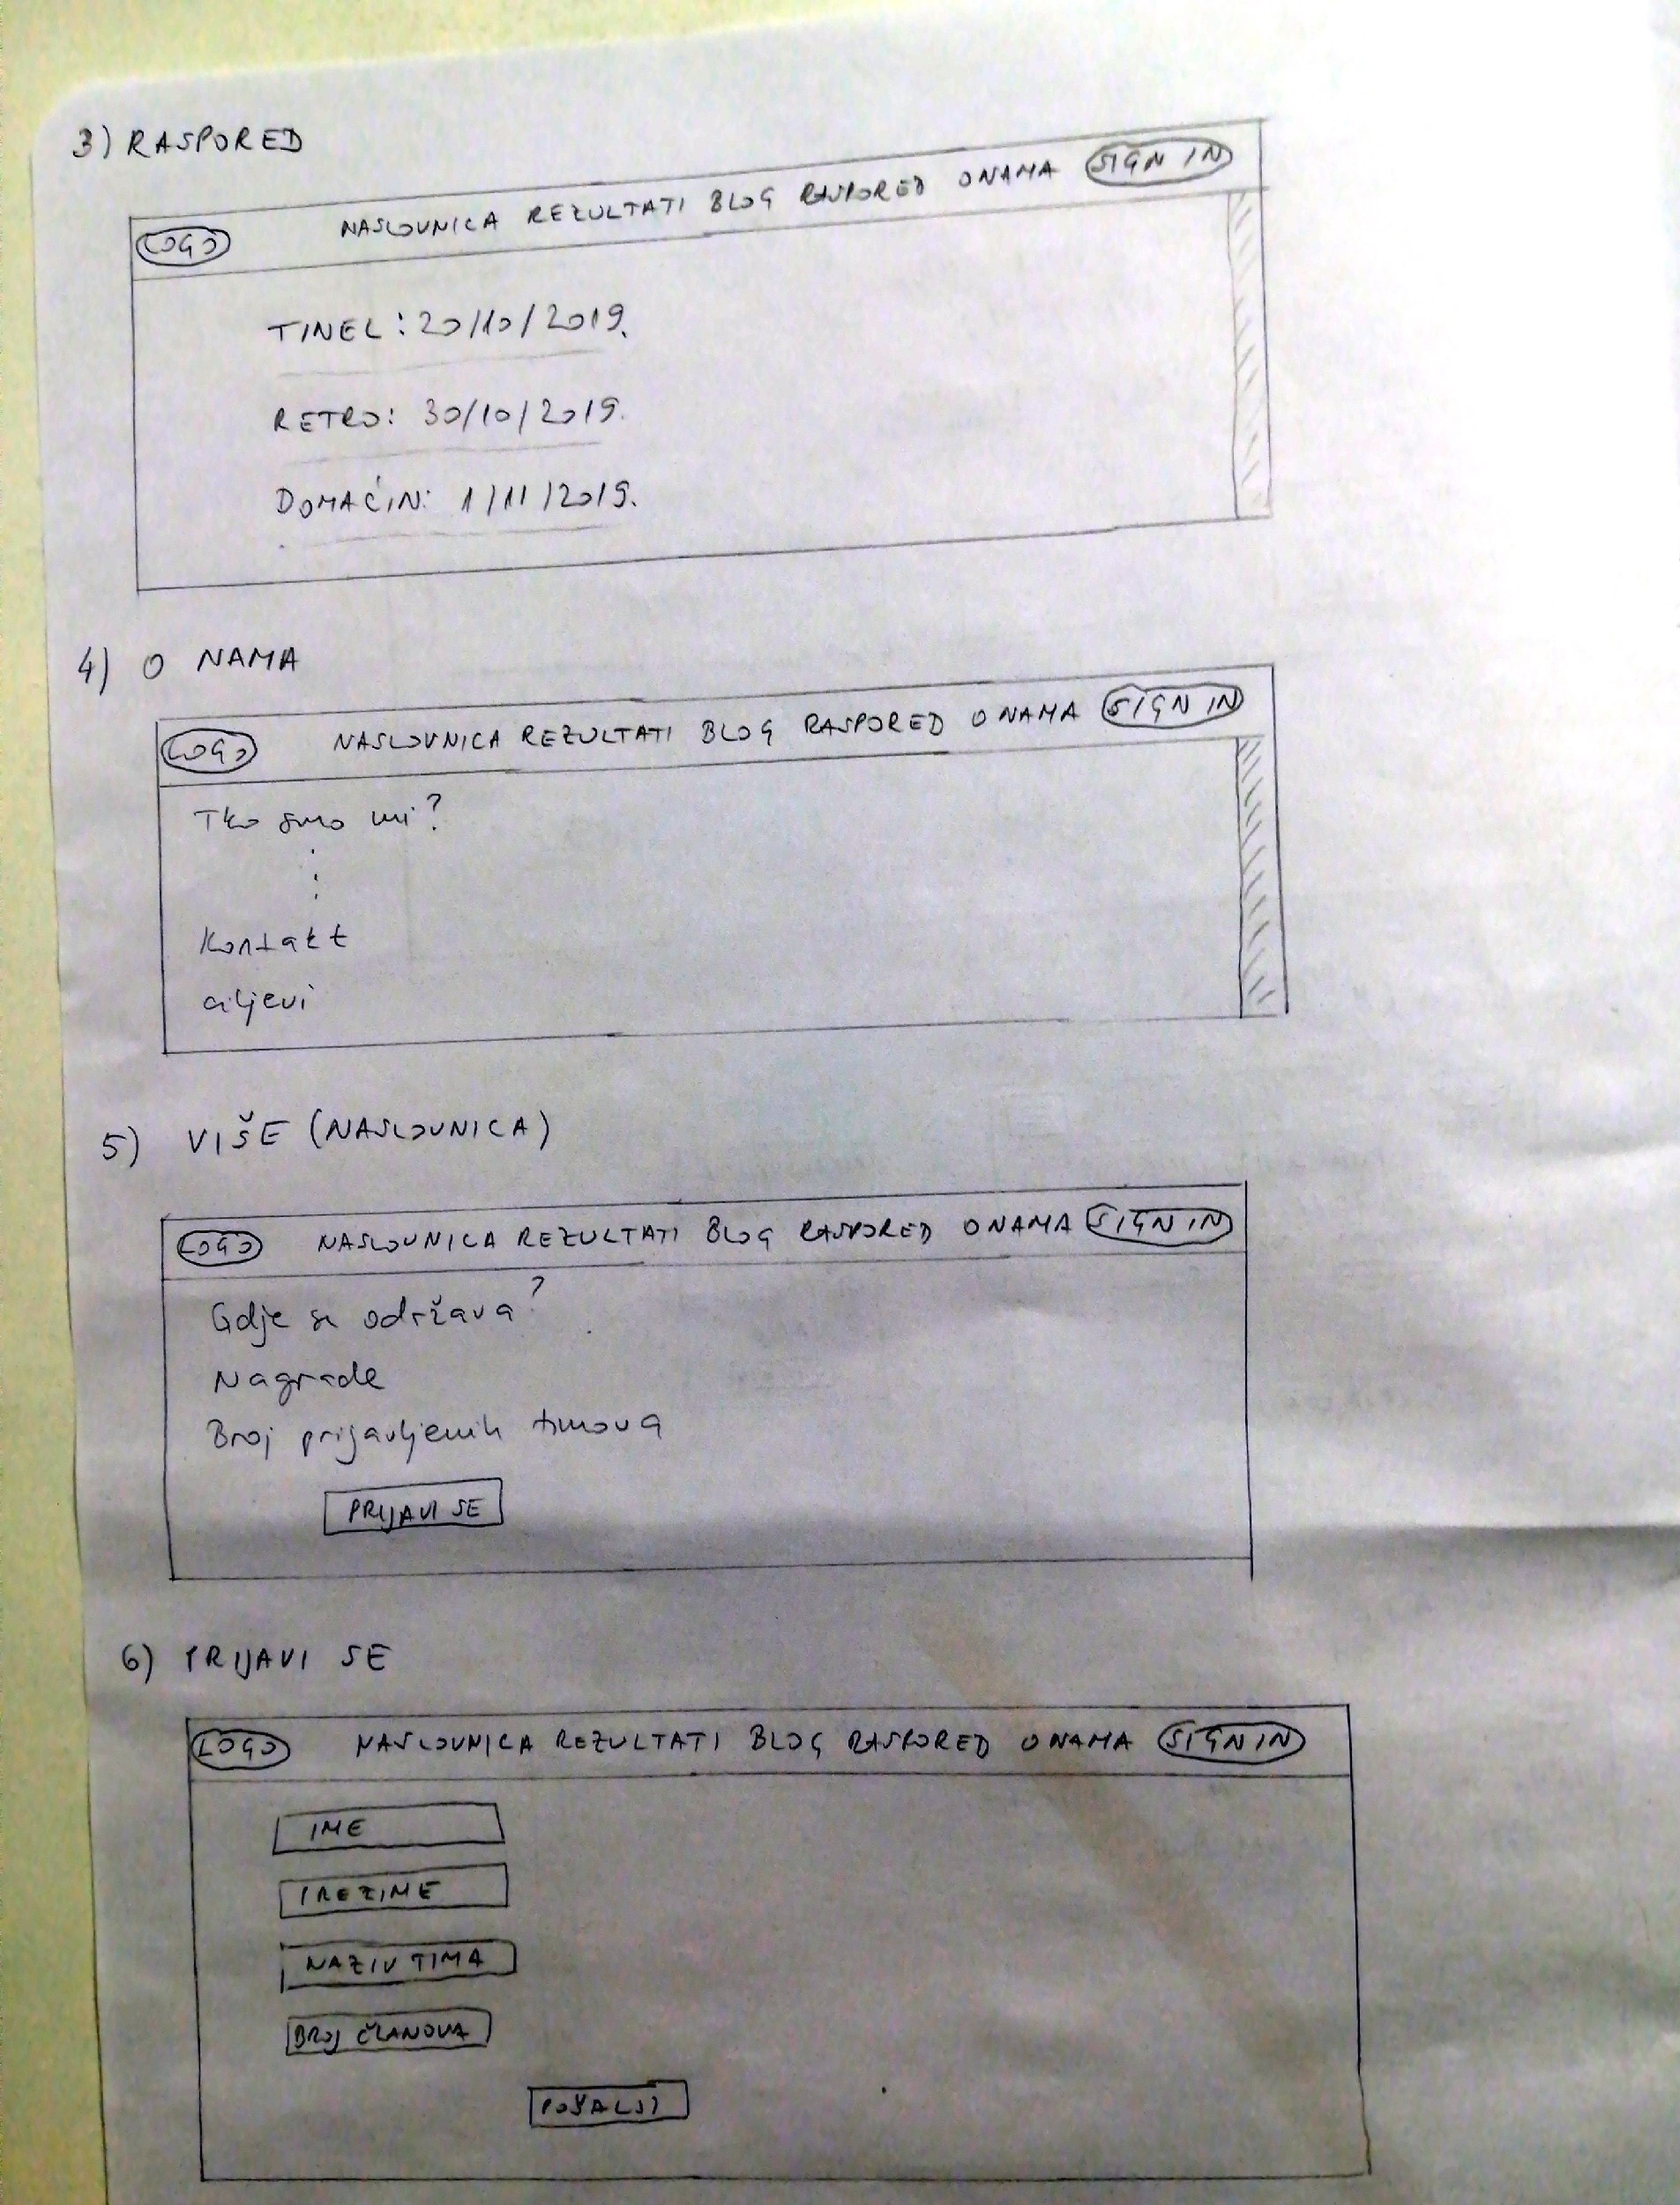 3) RASPORED
LOGO NASLOVNICA REZULTATI BLOG RASPORED O NAMA SIGN IN
TINEL: 20/10/2019.
RETRO: 30/10/2019.
DOMAĆIN: 1/11/2019.
4) O NAMA
LOGO NASLOVNICA REZULTATI BLOG RASPORED O NAMA SIGN IN
Tko smo mi?
Kontakt
ciljevi
5) VIŠE (NASLOVNICA)
LOGO NASLOVNICA REZULTATI BLOG RASPORED O NAMA SIGN IN
Gdje se održava?
Nagrade
Broj prijavljenih timova
PRIJAVI SE
6) PRIJAVI SE
LOGO NASLOVNICA REZULTATI BLOG RASPORED O NAMA SIGN IN
IME
PREZIME
NAZIV TIMA
BROJ ČLANOVA
POŠALJI